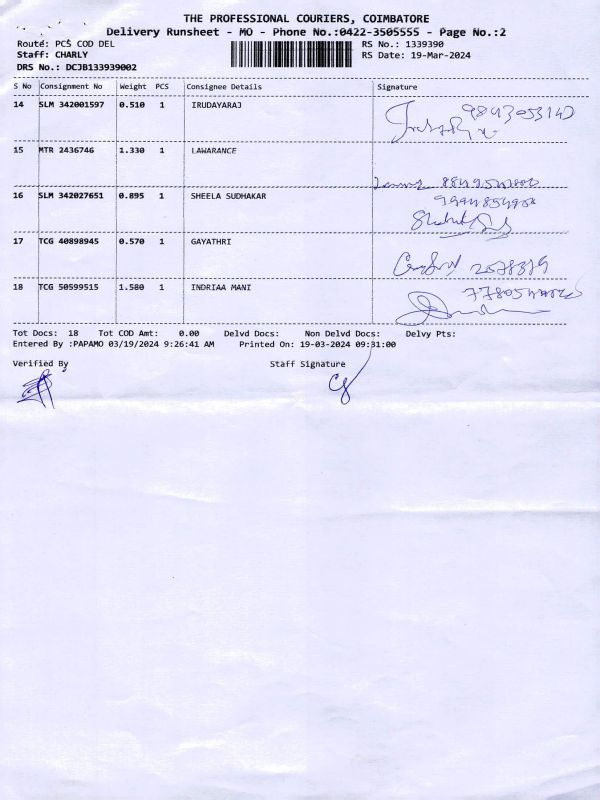 THE PROFESSIONAL COURIERS, COIMBATORE
Delivery Runsheet - MO - Phone No.:0422-3505555 - Page No.:2
Route: PCS COD DEL
RS No.: 1339390
Staff: CHARLY
RS Date: 19-Mar-2024
DRS No.: DCJB133939002
S No Consignment No Weight PCS Consignee Details Signature
14 SLM 342001597 0.510 1 IRUDAYARAJ
15 MTR 2436746 1.330 1 LAWARANCE
16 SLM 342027651 0.895 1 SHEELA SUDHAKAR
17 TCG 40898945 0.570 1 GAYATHRI
18 TCG 50599515 1.580 1 INDRIAA MANI
Tot Docs: 18 Tot COD Amt: 0.00 Delvd Docs: Non Delvd Docs: Delvy Pts:
Entered By :PAPAMO 03/19/2024 9:26:41 AM Printed On: 19-03-2024 09:31:00
Verified By Staff Signature